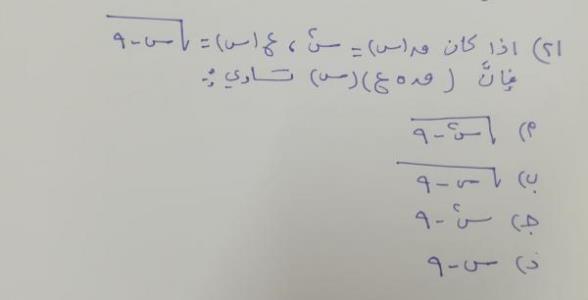 ٢١) اذا كان ق(س) = س٢ ، ع(س) = √س-٩
فإنَّ (ق ٥ ع)(س) تساوي :
م) √س٢-٩
ب) √س-٩
ج) س٢-٩
د) س-٩